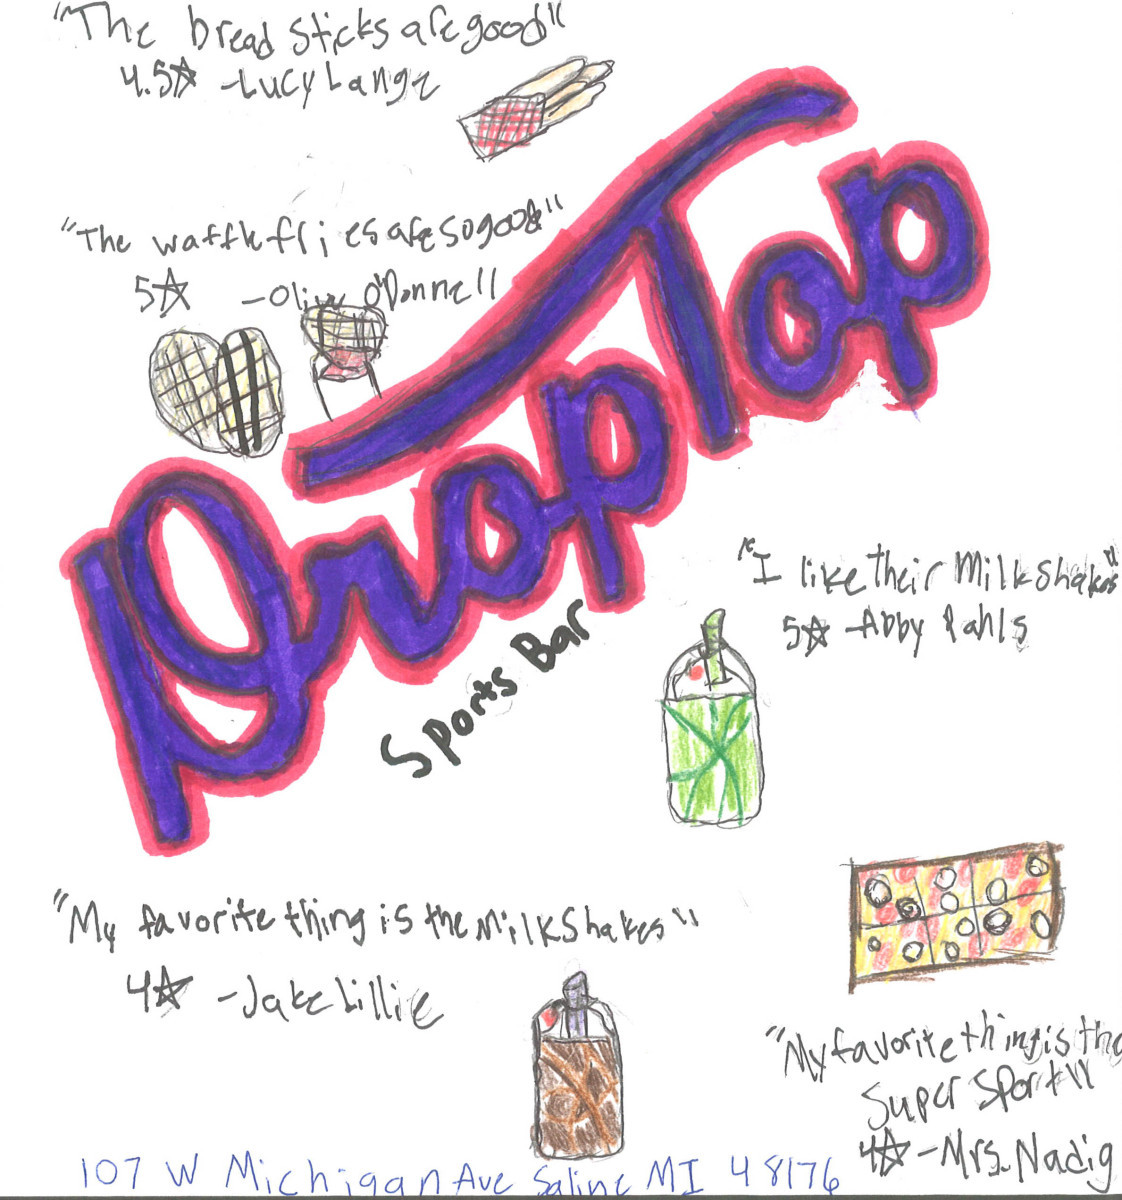 "The bread sticks are good"
4.5☆ -Lucy Lange
"The waffle fries are so good"
5☆ -Olive O'Donnell
DropTop
Sports Bar
"I like their Milkshakes"
5☆ -Abby Pahls
"My favorite thing is the MilkShakes"
4☆ -Jake Lillie
"My favorite thing is the
Super Sport"
4☆ -Mrs. Nadig
107 W Michigan Ave Saline MI 48176